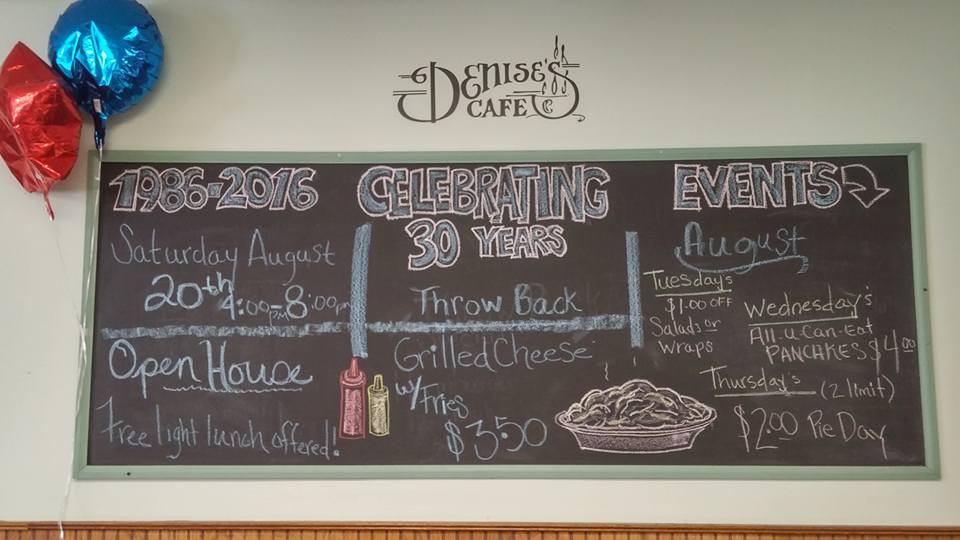 DENISE'S
CAFE
1986-2016
Saturday August
20th 4:00pm-8:00pm
Open House
Free light lunch offered!
CELEBRATING
30 YEARS
Throw Back
Grilled Cheese
w/ Fries
$3.50
EVENTS
August
Tuesday's
$1.00 OFF
Salads or
Wraps
Wednesday's
All-u-Can-Eat
PANCAKES $4.00
Thursday's (2 limit)
$2.00 Pie Day